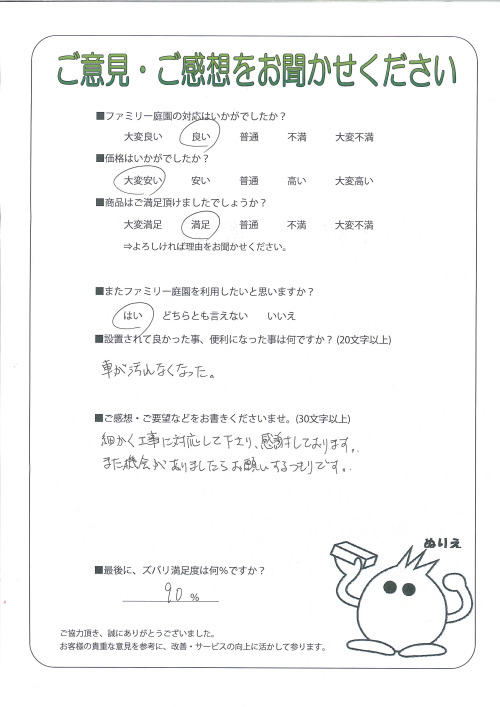 ご意見・ご感想をお聞かせください
■ファミリー庭園の対応はいかがでしたか？
大変良い 良い 普通 不満 大変不満
■価格はいかがでしたか？
大変安い 安い 普通 高い 大変高い
■商品はご満足頂けましたでしょうか？
大変満足 満足 普通 不満 大変不満
⇒よろしければ理由をお聞かせください。
■またファミリー庭園を利用したいと思いますか？
はい どちらとも言えない いいえ
■設置されて良かった事、便利になった事は何ですか？(20文字以上)
車が汚れなくなった。
■ご感想・ご要望などをお書きくださいませ。(30文字以上)
細かく工事に対応して下さり、感謝しております。
また機会がありましたらお願いするつもりです。
ぬりえ
■最後に、ズバリ満足度は何%ですか？
90 %
ご協力頂き、誠にありがとうございました。
お客様の貴重な意見を参考に、改善・サービスの向上に活かして参ります。